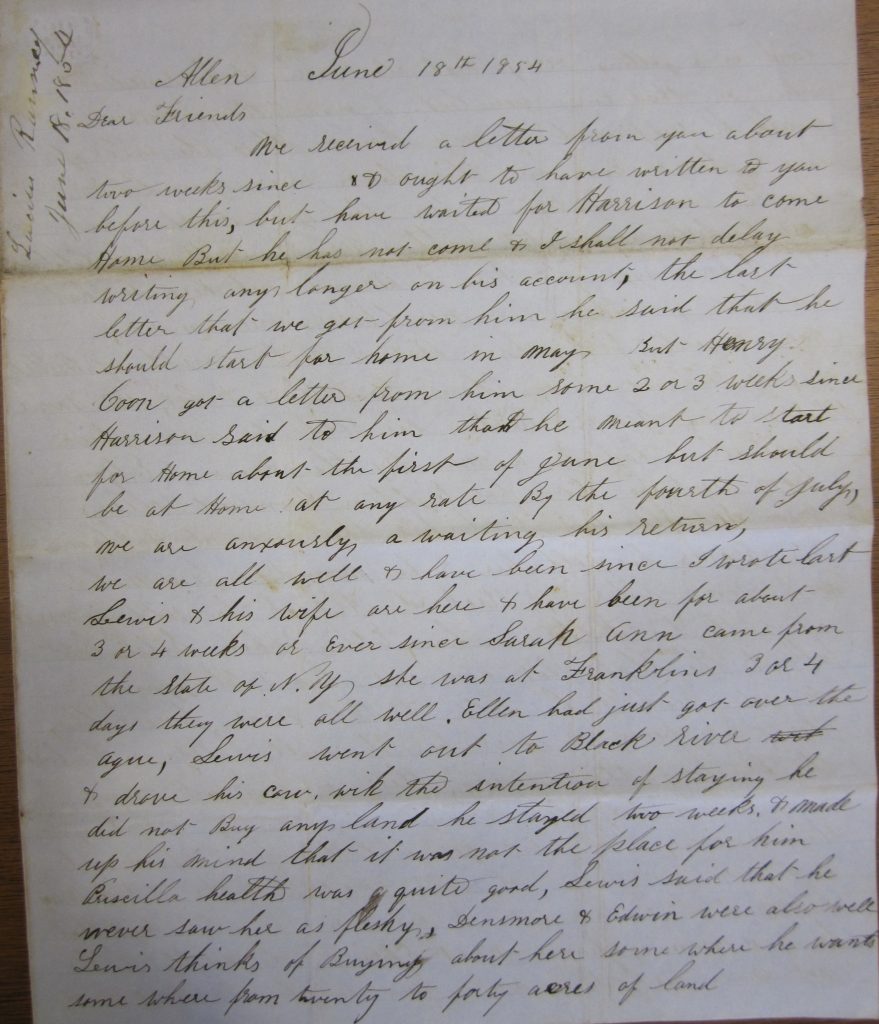 Lucius Ranney
June 18, 1854
Allen June 18th 1854
Dear Friends
We received a letter from you about
two weeks since & ought to have written to you
before this, but have waited for Harrison to come
Home But he has not come & I shall not delay
writing any longer on his account, the last
letter that we got from him he said that he
should start for home in may But Henry
Coon got a letter from him some 2 or 3 weeks since
Harrison said to him that he meant to start
for Home about the first of June but should
be at Home at any rate By the fourth of July,
we are anxously a waiting his return,
we are all well & have been since I wrote last
Lewis & his wife are here & have been for about
3 or 4 weeks or Ever since Sarah Ann came from
the State of N.Y, she was at Franklins 3 or 4
days they were all well. Ellen had just got over the
ague, Lewis went out to Black river
& drove his cow. wik the intention of staying he
did not Buy any land he stayed two weeks. & made
up his mind that it was not the place for him
Priscilla health was quite good, Lewis said that he
never saw her as fleshy, Densmore & Edwin were also well
Lewis thinks of Buying about here some where he wants
some where from twenty to forty acres of land